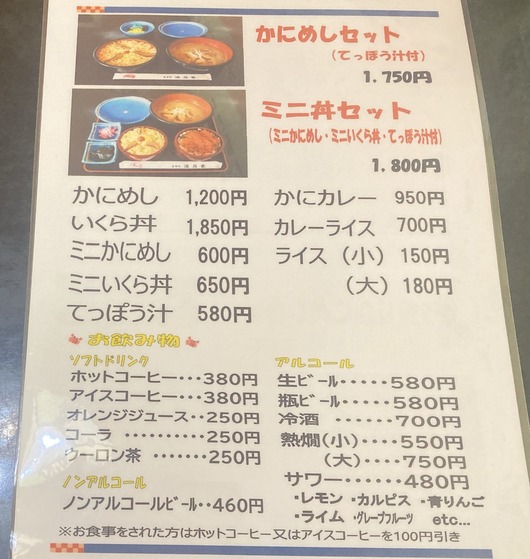 かにめしセット
(てっぽう汁付)
1,750円
ミニ丼セット
(ミニかにめし・ミニいくら丼・てっぽう汁付)
1,800円
かにめし 1,200円
いくら丼 1,850円
ミニかにめし 600円
ミニいくら丼 650円
てっぽう汁 580円
かにカレー 950円
カレーライス 700円
ライス (小) 150円
(大) 180円
お飲み物
ソフトドリンク
ホットコーヒー・・・380円
アイスコーヒー・・・380円
オレンジジュース・・250円
コーラ ・・・・・・・・・・250円
ウーロン茶 ・・・・・・・250円
ノンアルコール
ノンアルコールビール・・460円
アルコール
生ビール・・・・・580円
瓶ビール・・・・・580円
冷酒 ・・・・・・・700円
熱燗(小)・・・・550円
(大)・・・・750円
サワー・・・・・・480円
・レモン ・カルピス ・青りんご
・ライム ・グレープフルーツ etc...
※お食事をされた方はホットコーヒー又はアイスコーヒーを100円引き